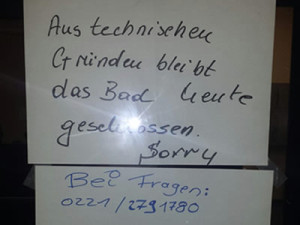 Aus technischen
Gründen bleibt
das Bad heute
geschlossen.
Sorry
Bei Fragen:
0221/2791780